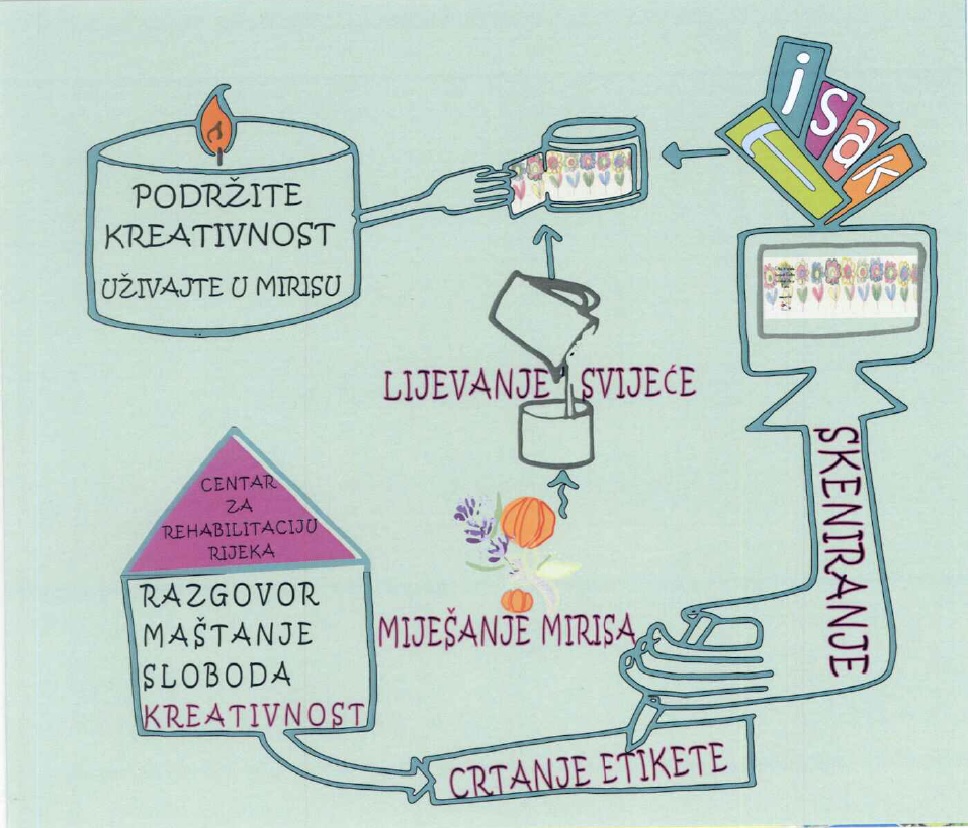 PODRŽITE
KREATIVNOST
UŽIVAJTE U MIRISU
Tisak
LIJEVANJE SVIJEĆE
SKENIRANJE
CENTAR
ZA
REHABILITACIJU
RIJEKA
RAZGOVOR
MAŠTANJE
SLOBODA
KREATIVNOST
MIJEŠANJE MIRISA
CRTANJE ETIKETE